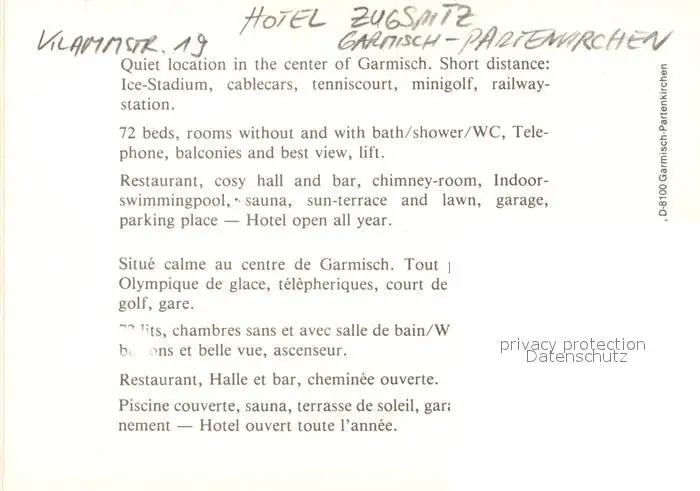 HOTEL ZUGSPITZ
KLAMMSTR. 19 GARMISCH-PARTENKIRCHEN
Quiet location in the center of Garmisch. Short distance:
Ice-Stadium, cablecars, tenniscourt, minigolf, railway-
station.
72 beds, rooms without and with bath/shower/WC, Tele-
phone, balconies and best view, lift.
Restaurant, cosy hall and bar, chimney-room, Indoor-
swimmingpool, sauna, sun-terrace and lawn, garage,
parking place — Hotel open all year.
Situé calme au centre de Garmisch. Tout
Olympique de glace, télèpheriques, court de
golf, gare.
lits, chambres sans et avec salle de bain/W
et belle vue, ascenseur.
Restaurant, Halle et bar, cheminée ouverte.
Piscine couverte, sauna, terrasse de soleil,
nement — Hotel ouvert toute l'année.
, D-8100 Garmisch-Partenkirchen
privacy protection
Datenschutz